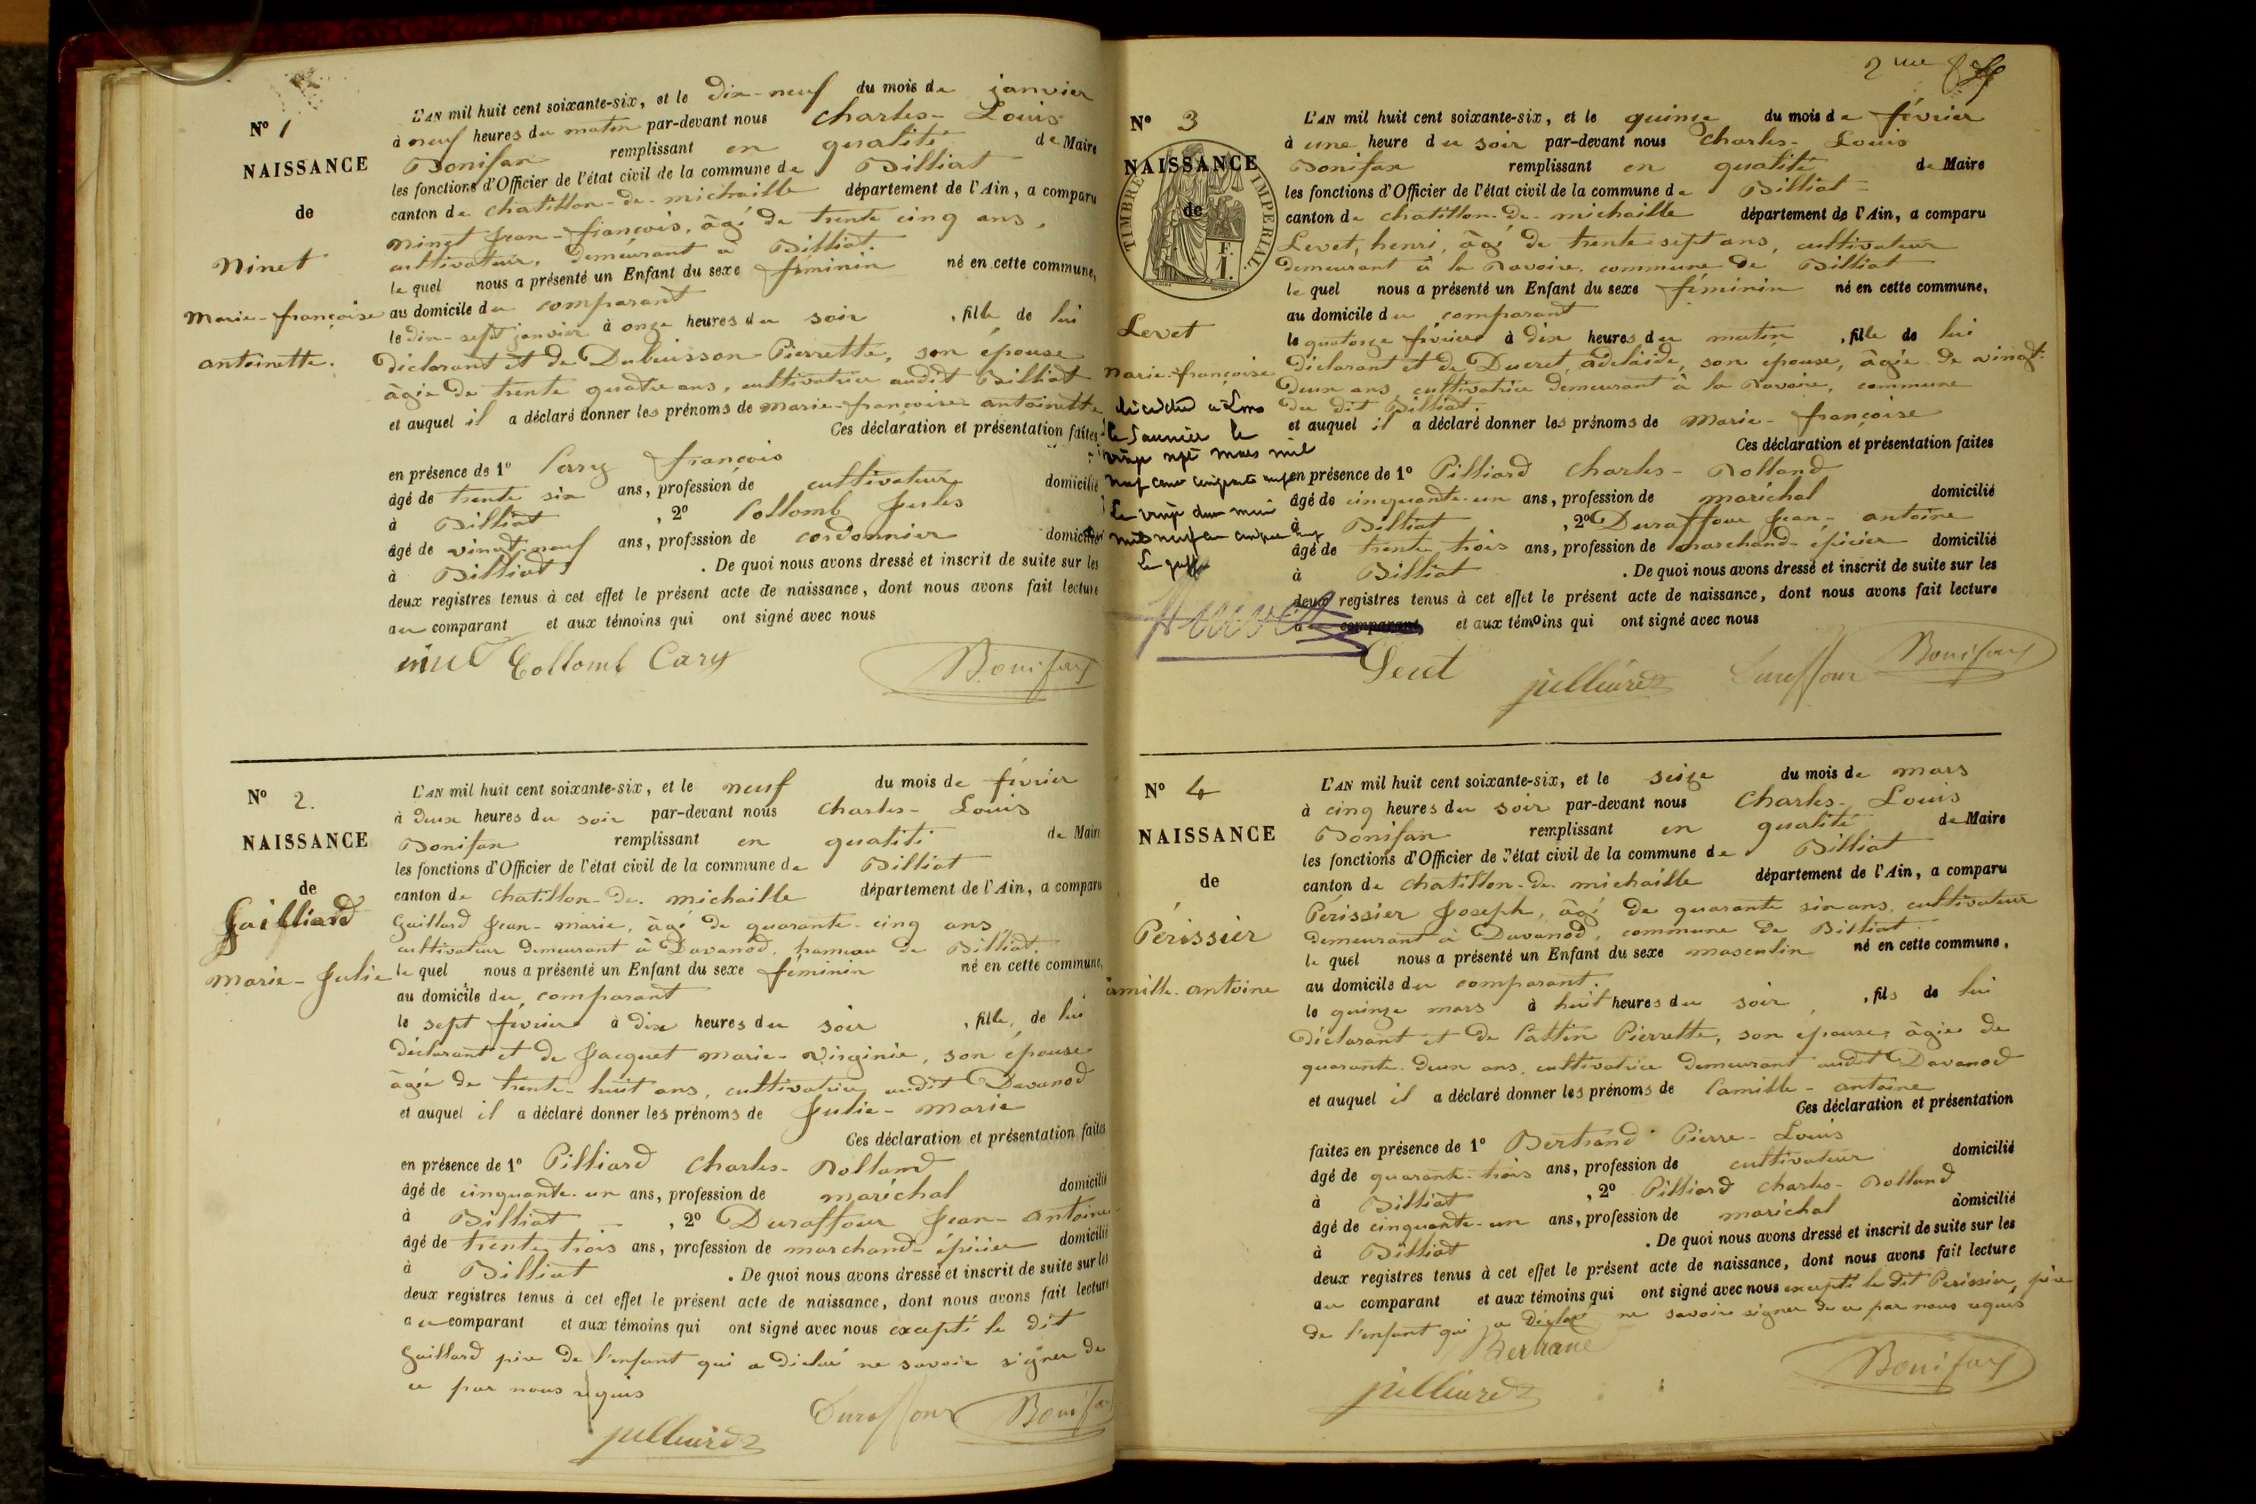 N° 1
NAISSANCE
de
Ninet
Marie-françoise
antoinette.
L'AN mil huit cent soixante-six, et le dix-neuf du mois de janvier
à neuf heures du matin par-devant nous Charles-Louis
Bonifax remplissant en qualité de Maire
les fonctions d'Officier de l'état civil de la commune de Billiat
canton de Chatillon-de-michaille département de l'Ain, a comparu
Ninet Jean-françois, âgé de trente cinq ans,
cultivateur, demeurant à Billiat.
le quel nous a présenté un Enfant du sexe féminin né en cette commune,
au domicile du comparant
le dix-sept janvier à onze heures du soir, fille de lui
déclarant et de Dubuisson Pierrette, son épouse
âgée de trente quatre ans, cultivatrice audit Billiat
et auquel il a déclaré donner les prénoms de Marie-françoise antoinette
Ces déclaration et présentation faites
en présence de 1° Carry françois
âgé de trente six ans, profession de cultivateur domicilié
à Billiat, 2° Collomb Jules
âgé de vingt-neuf ans, profession de cordonnier domicilié
à Billiat. De quoi nous avons dressé et inscrit de suite sur les
deux registres tenus à cet effet le présent acte de naissance, dont nous avons fait lecture
au comparant et aux témoins qui ont signé avec nous
Collomb Cary Bonifax
N° 2.
NAISSANCE
de
Gailliard
Marie-Julie
L'AN mil huit cent soixante-six, et le neuf du mois de février
à deux heures du soir par-devant nous Charles-Louis
Bonifax remplissant en qualité de Maire
les fonctions d'Officier de l'état civil de la commune de Billiat
canton de Chatillon-de-michaille département de l'Ain, a comparu
Gaillard Jean-marie, âgé de quarante-cinq ans,
cultivateur demeurant à Davanod, hameau de Billiat
le quel nous a présenté un Enfant du sexe féminin né en cette commune,
au domicile du comparant
le sept février à dix heures du soir, fille, de lui
déclarant et de Jacquet marie-Virginie, son épouse
âgée de trente-huit ans, cultivatrice audit Davanod
et auquel il a déclaré donner les prénoms de Julie-Marie
Ces déclaration et présentation faites
en présence de 1° Pilliard Charles-Rolland
âgé de cinquante-un ans, profession de maréchal domicilié
à Billiat, 2° Duraffour Jean-Antoine
âgé de trente trois ans, profession de marchand-épicier domicilié
à Billiat. De quoi nous avons dressé et inscrit de suite sur les
deux registres tenus à cet effet le présent acte de naissance, dont nous avons fait lecture
au comparant et aux témoins qui ont signé avec nous excepté le dit
Gaillard père de l'enfant qui a déclaré ne savoir signer de
ce par nous requis
pilliard Duraffour Bonifax
2me
N° 3
NAISSANCE
de
TIMBRE IMPERIAL
F.
1.
Levet
Marie-françoise
décédée à Lons
le Saunier le
vingt sept mars mil
neuf cent cinquante neuf
L'AN mil huit cent soixante-six, et le quinze du mois de février
à une heure du soir par-devant nous Charles-Louis
Bonifax remplissant en qualité de Maire
les fonctions d'Officier de l'état civil de la commune de Billiat
canton de Chatillon-de-michaille département de l'Ain, a comparu
Levet, henri, âgé de trente-sept ans, cultivateur
demeurant à la Ravoire, commune de Billiat
le quel nous a présenté un Enfant du sexe féminin né en cette commune,
au domicile du comparant
le quatorze février à dix heures du matin, fille de lui
déclarant et de Ducret, adelaïde, son épouse, âgée de vingt-
deux ans, cultivatrice demeurant à la Ravoire, commune
du dit Billiat.
et auquel il a déclaré donner les prénoms de Marie-françoise
Ces déclaration et présentation faites
en présence de 1° Pilliard Charles-Rolland
âgé de cinquante-un ans, profession de maréchal domicilié
à Billiat, 2° Duraffour Jean-antoine
âgé de trente trois ans, profession de marchand-épicier domicilié
à Billiat. De quoi nous avons dressé et inscrit de suite sur les
deux registres tenus à cet effet le présent acte de naissance, dont nous avons fait lecture
au comparant et aux témoins qui ont signé avec nous
Levet pilliard Duraffour Bonifax
N° 4
NAISSANCE
de
Périssier
Camille-antoine
L'AN mil huit cent soixante-six, et le seize du mois de mars
à cinq heures du soir par-devant nous Charles-Louis
Bonifax remplissant en qualité de Maire
les fonctions d'Officier de l'état civil de la commune de Billiat
canton de Chatillon-de-michaille département de l'Ain, a comparu
Périssier Joseph, âgé de quarante six ans, cultivateur
demeurant à Davanod, commune de Billiat.
le quel nous a présenté un Enfant du sexe masculin né en cette commune,
au domicile du comparant.
le quinze mars à huit heures du soir, fils de lui
déclarant et de Cattin Pierrette, son épouse, âgée de
quarante-deux ans, cultivatrice demeurant audit Davanod
et auquel il a déclaré donner les prénoms de Camille-antoine
Ces déclaration et présentation
faites en présence de 1° Bertrand Pierre-Louis
âgé de quarante-trois ans, profession de cultivateur domicilié
à Billiat, 2° Pilliard Charles-Rolland
âgé de cinquante-un ans, profession de maréchal domicilié
à Billiat. De quoi nous avons dressé et inscrit de suite sur les
deux registres tenus à cet effet le présent acte de naissance, dont nous avons fait lecture
au comparant et aux témoins qui ont signé avec nous excepté le dit Périssier, père
de l'enfant qui a déclaré ne savoir signer de ce par nous requis
Bertrand
pilliard Bonifax